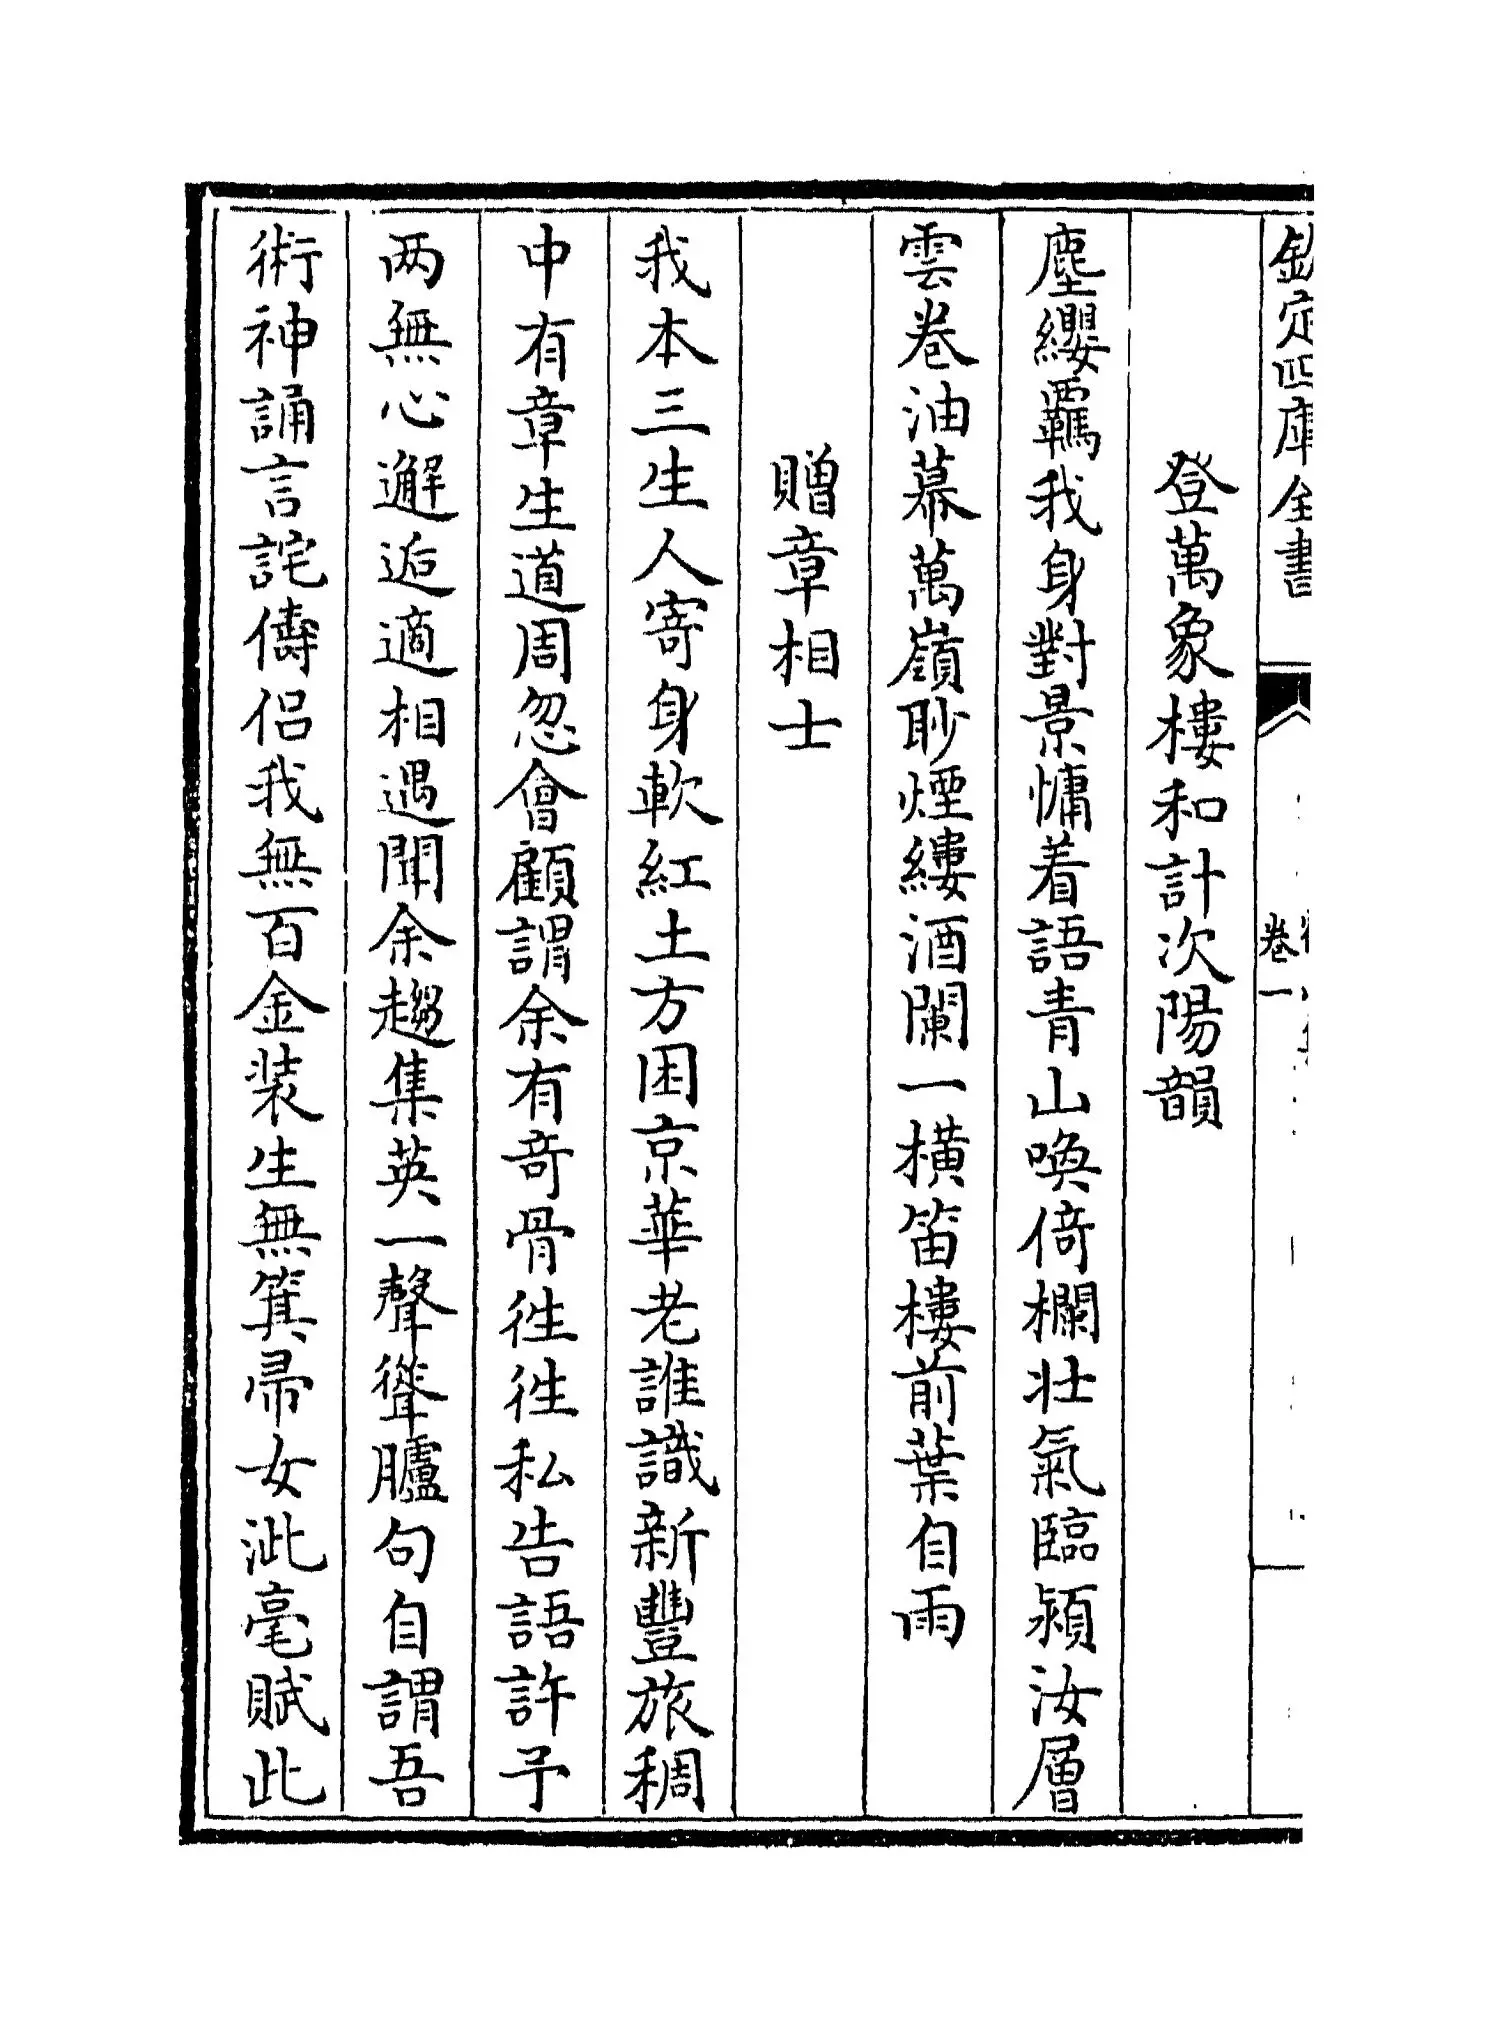 欽定四庫全書
卷一
登萬象樓和計次陽韻
塵纓羈我身對景慵着語青山喚倚欄壯氣臨潁汝層
雲卷油幕萬嶺眇煙縷酒闌一橫笛樓前葉自雨
贈章相士
我本三生人寄身軟紅土方困京華老誰識新豐旅稠
中有章生道周忽會顧謂余有竒骨徃徃私告語許予
两無心邂逅適相遇聞余趨集英一聲聳臚句自謂吾
術神誦言詫儔侶我無百金装生無箕帚女泚毫賦此